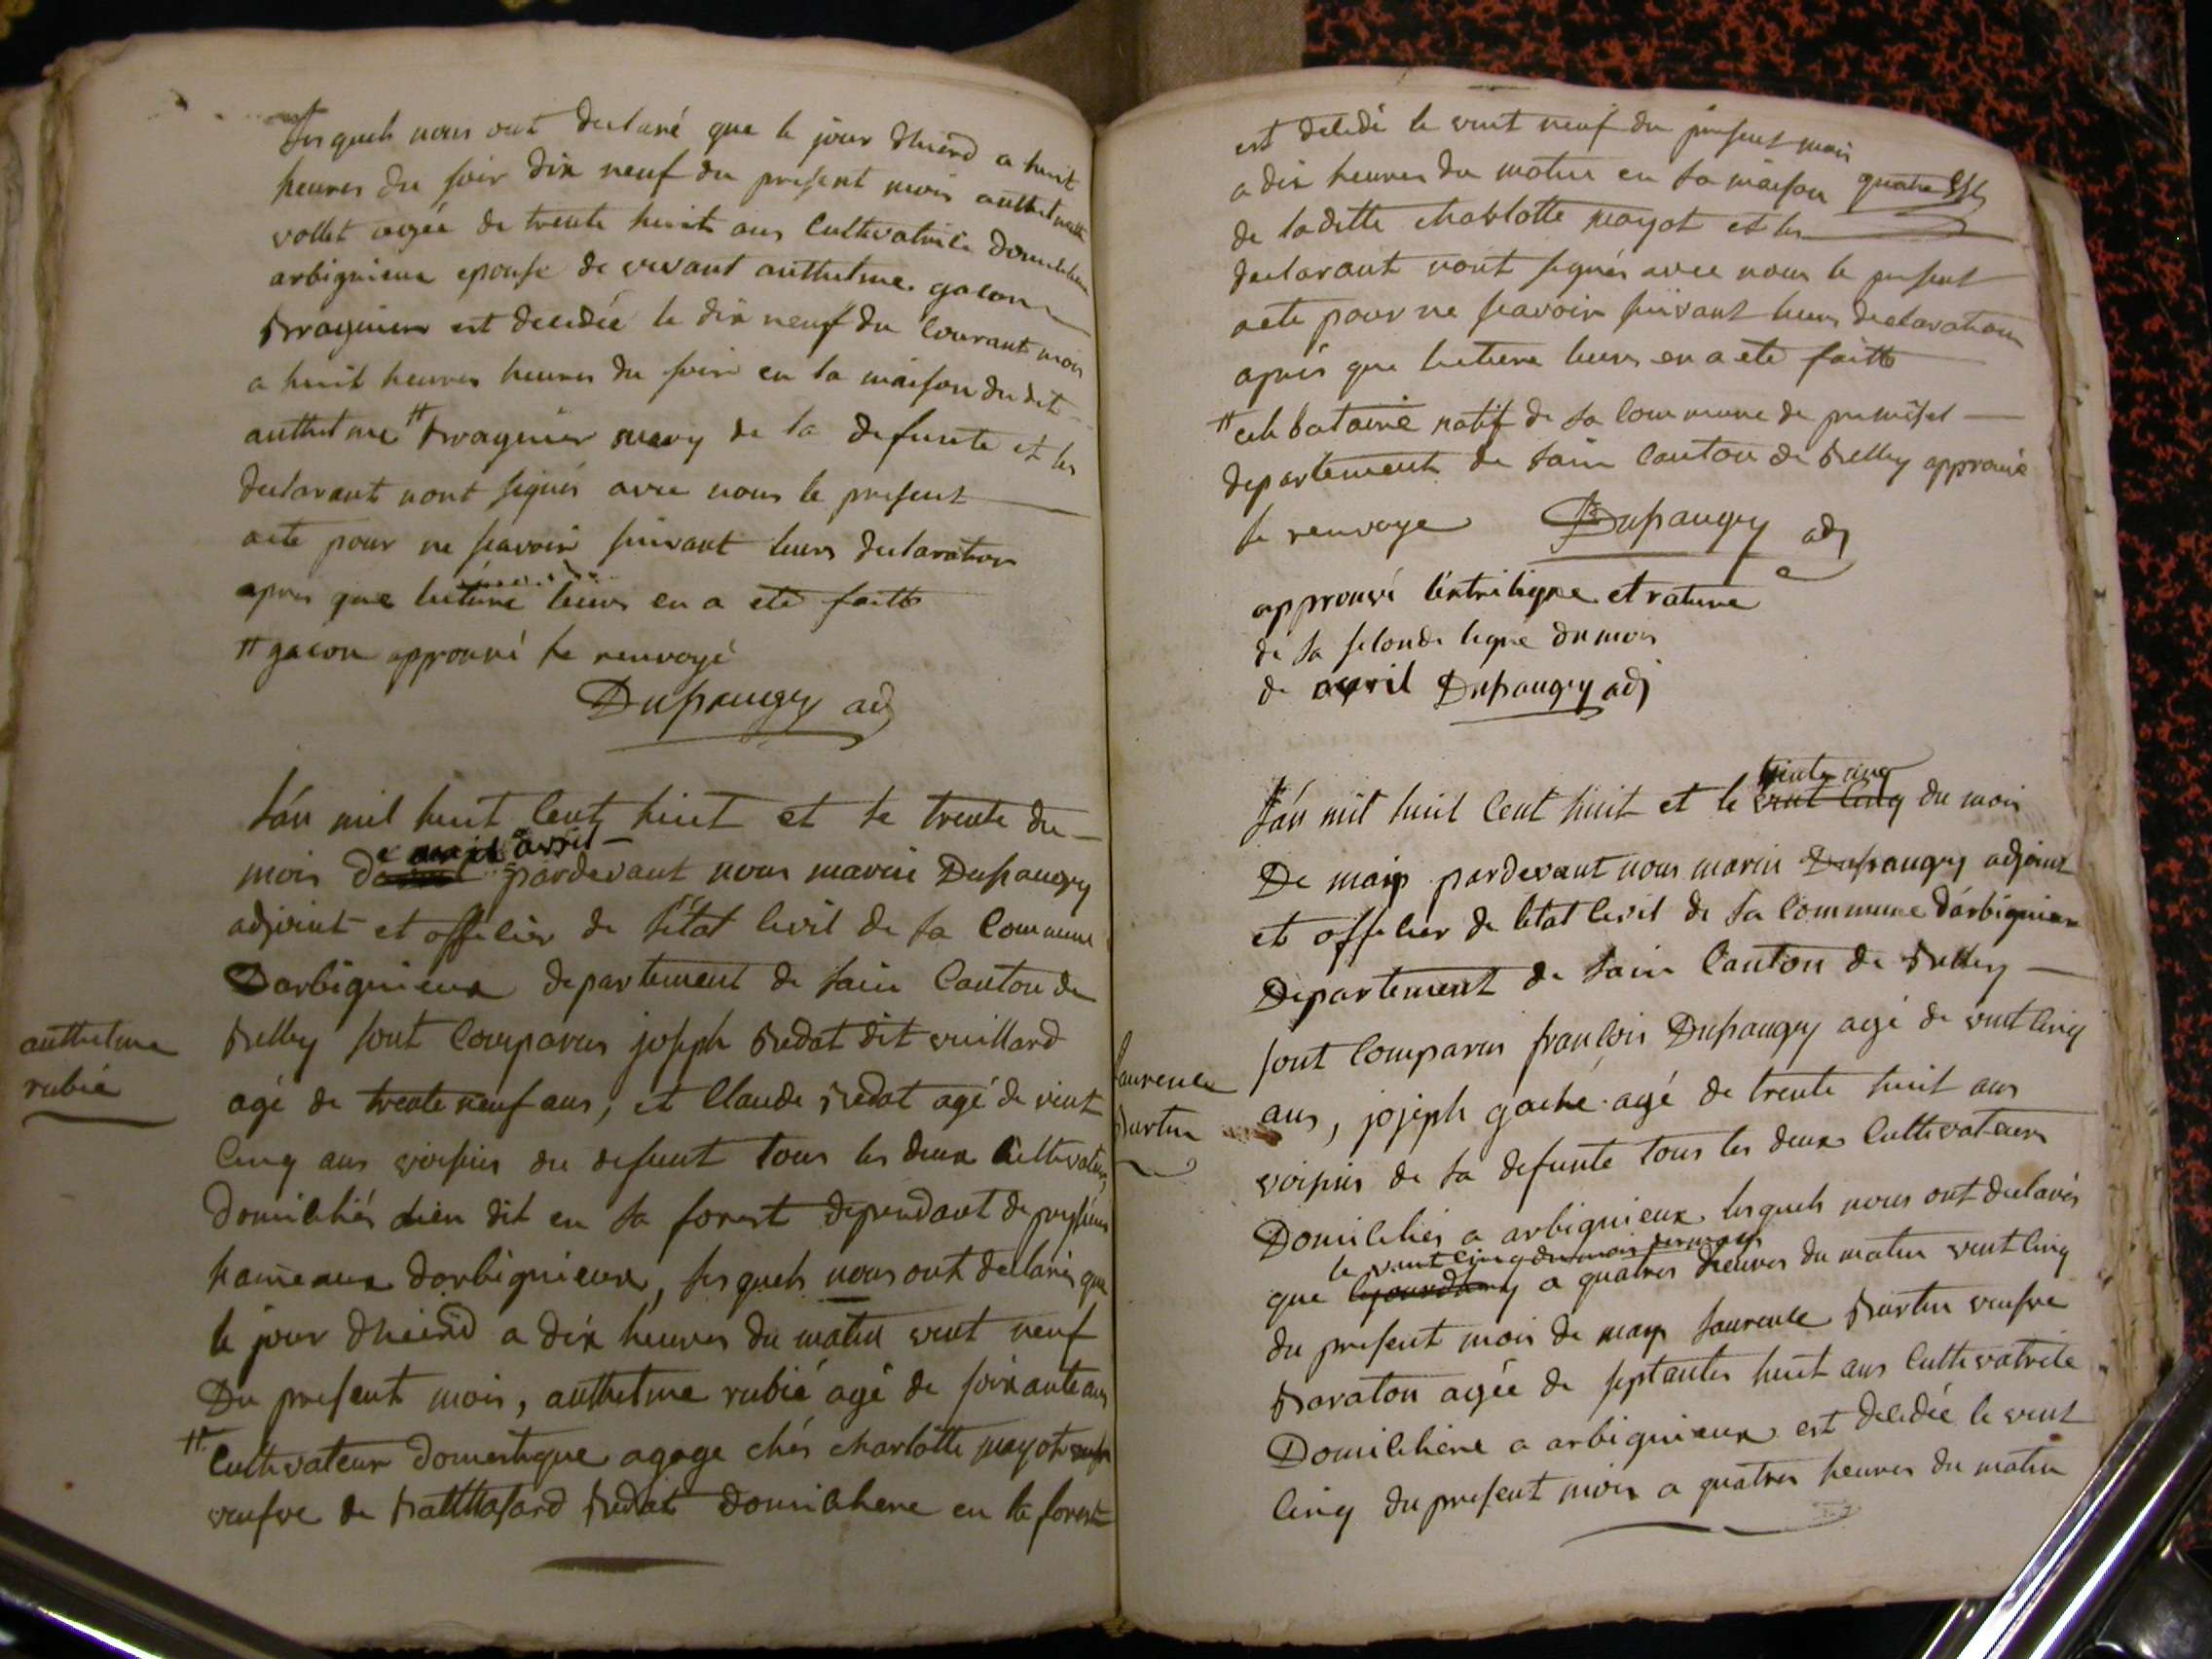 lesquels nous ont declaré que le jour dhierd a huit
heures du soir dix neuf du present mois anthelmette
vollet agée de trente huit ans Cultivatrice
arbignieux epouse de vivant anthelme gacon
Bragnier est decedée le dix neuf du Courant mois
a huit heures heures du soir en la maison du dit
anthelme # Bragnier mary de la defunte et les
declarant nont signés avec nous le present
acte pour ne scavoir suivant leurs declaration
apres que lecture leurs en a eté faitte
# gacon approuvé le renvoyé
Dupaugey adj
L'an mil huit Cent huit et le trente du
mois de avril pardevant nous marin Dupaugey
adjoint et officier de l'état Civil de la Commune
Darbignieux departement de Lain Canton de
Belley sont Comparus joseph Bedat dit vuillard
agé de trente neuf ans, et Claude Bedat agé de vint
Cinq ans voisins du defunt tous les deux Cultivateurs
Domiciliés lieu dit en la forest dependant de
hameaux d'arbignieux, lesquels nous ont declarés que
le jour dhierd a dix heures du matin vint neuf
Du present mois, anthelme rubié agé de soixante ans
# Cultivateur domestique agage chés charlotte mayot
veufve de Batthasard Bedat domiciliere en la forest
anthelme
rubié
est decedé le vint neuf du present mois
a dix heures du matin en la maison
de laditte charlotte mayot et les
declarant nont signés avec nous le present
acte pour ne scavoir suivant leurs declaration
après que lecture leurs en a eté faitte
# celibataire natif de la Commune de premisel
departement de Lain Canton de Belley approuvé
le renvoye Dupaugey adj
approuvé l'entreligne et rature
de la seconde ligne du mois
de avril Dupaugey adj
L'an mil huit Cent huit et le vint Cinq du mois
vinte cinq
De may pardevant nous marin Dupaugey adjoint
et officier de létat Civil de la Commune d'arbignieu
Departement de Lain Canton de Belley
sont Comparus françois Dupaugey agé de vint Cinq
ans, joseph gaché agé de trente huit ans
voisins de la defunte tous les deux Cultivateurs
Domiciliés a arbignieux lesquels nous ont declarés
le vint cinq du mois de may
que lejourdhuy a quatres heures du matin vint Cinq
du present mois de may Laurence Burtin veufve
Baraton agée de septantes huit ans Cultivatrice
Domiciliere a arbignieux est decedée le vint
Cinq du present mois a quatres heures du matin
Laurence
Burtin